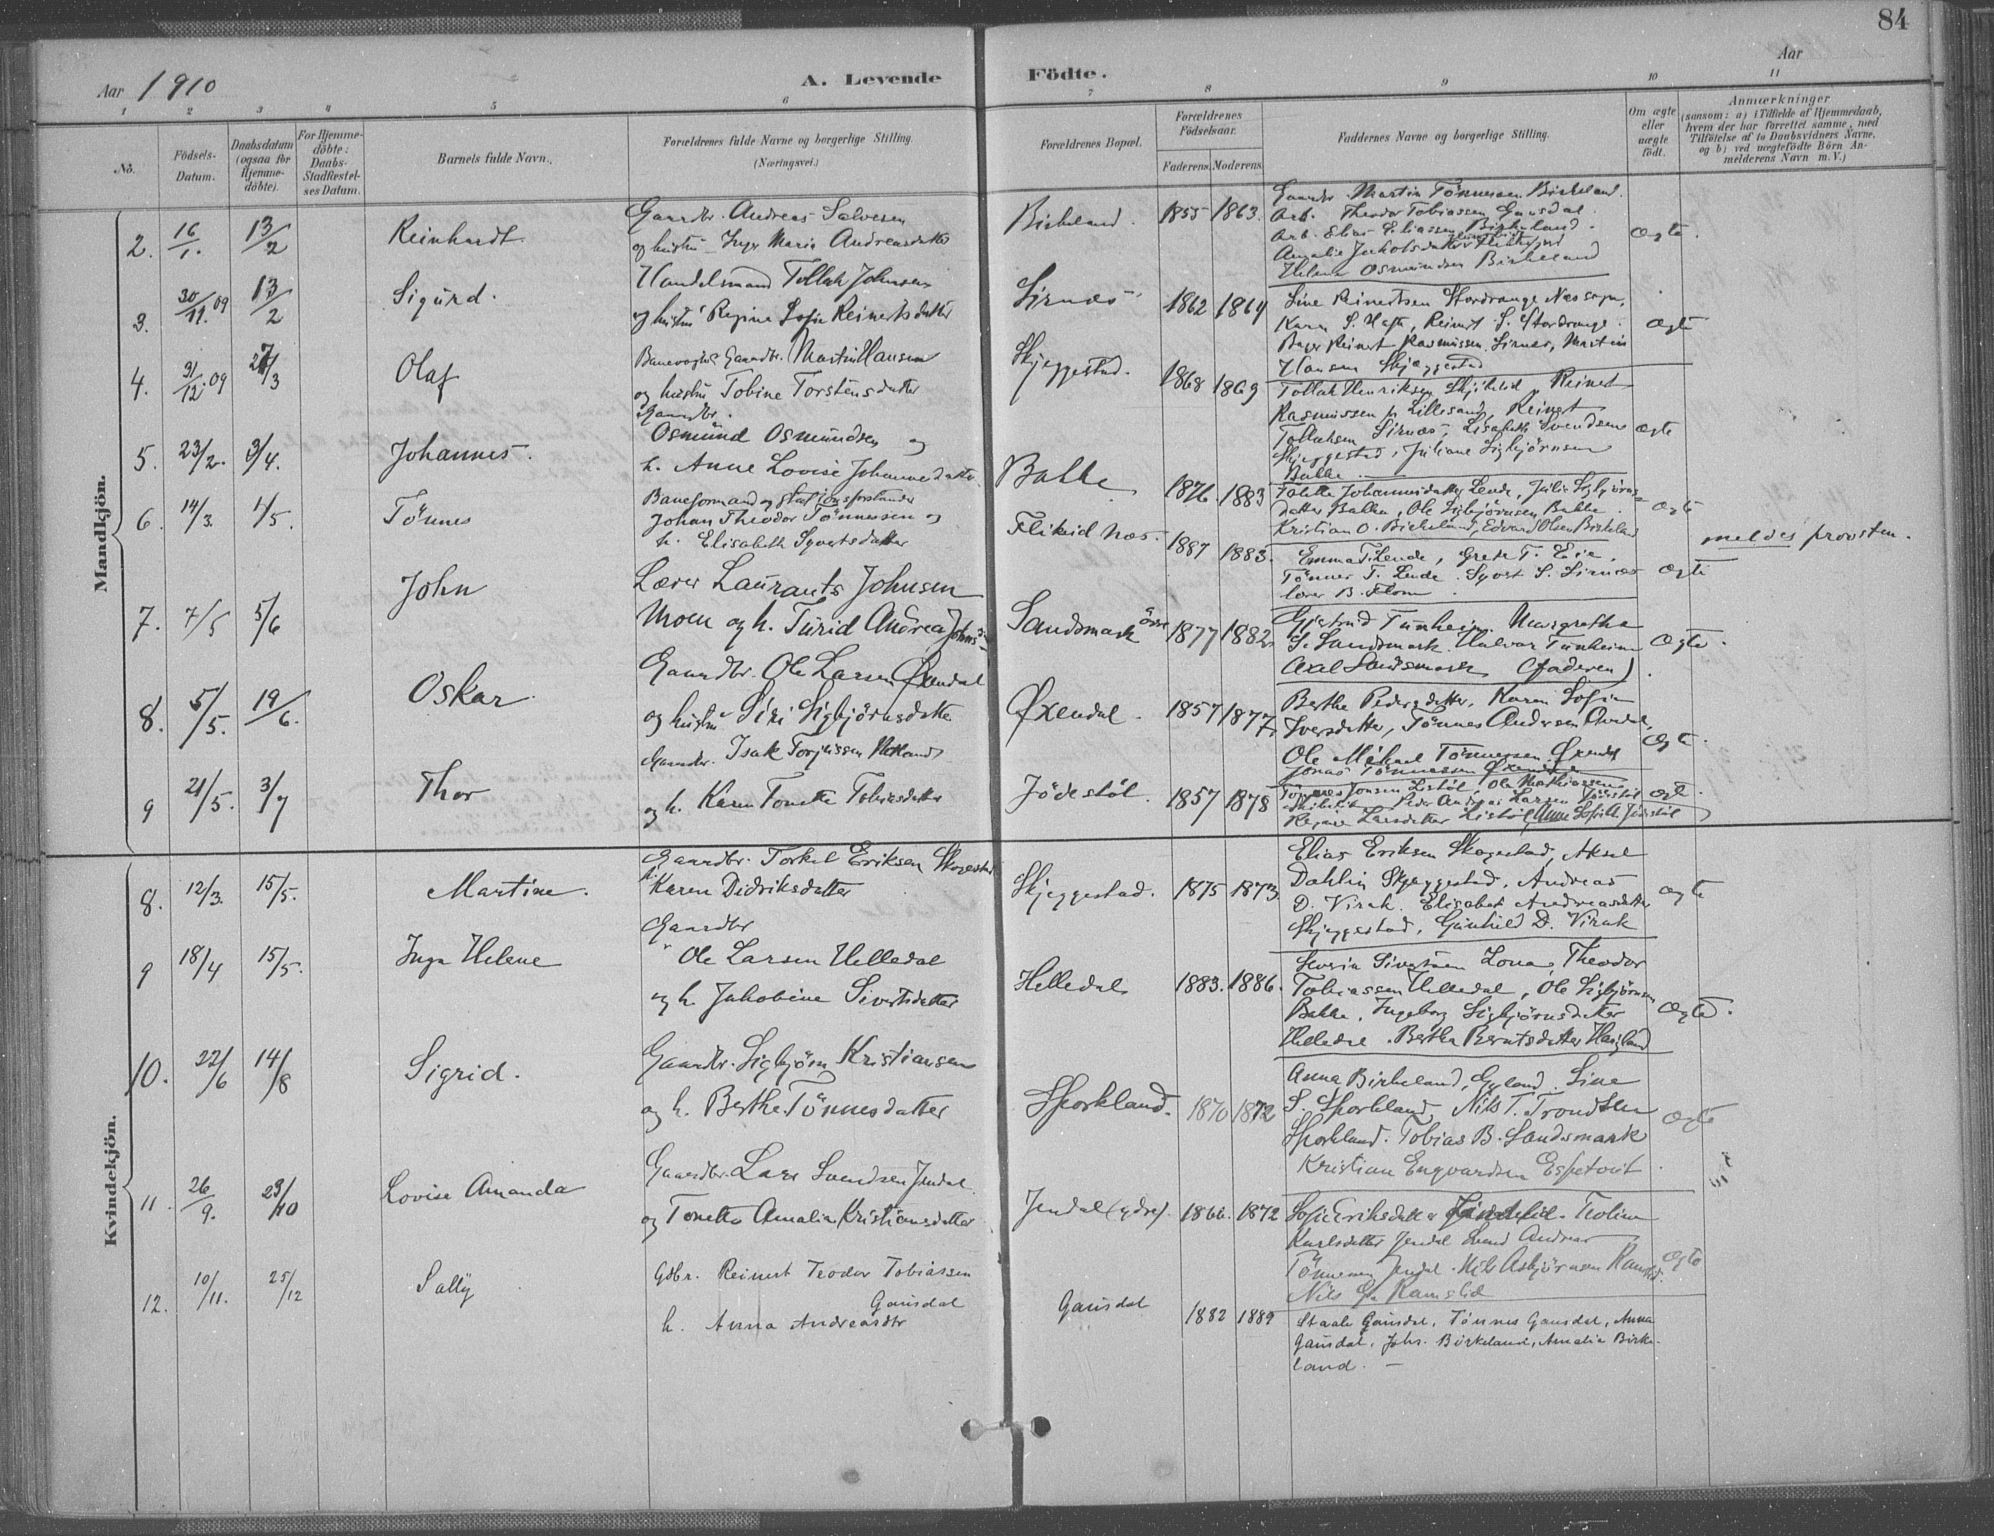 84
Aar 1910
A. Levende Födte.
Aar
1 2 3 4 5 6 7 8 9 10 11
No.
Födsels-Datum.
Daabsdatum (ogsaa for Hjemme-döbte).
For Hjemme-döbte: Daabs-Stadfæstel-ses Datum.
Barnets fulde Navn.
Forældrenes fulde Navne og borgerlige Stilling. (Næringsvei.)
Forældrenes Bopæl.
Forældrenes Födselsaar.
Faderens. Moderens.
Faddernes Navne og borgerlige Stilling.
Om ægte eller uægte födt.
Anmærkninger
(saasom: a) i Tilfælde af Hjemmedaab, hvem der har forrettet samme, med Tilföielse af to Daabsvidners Navne, og b) ved uægtefödte Börn An-melderens Navn m. V.)
Mandkjön.
2. 16/1. 13/2 Reinhardt
Gaardbr. Andreas Salvesen
og hustru Inger Maria Andreasdatter
Birkeland. 1855 1863
Gaardbr. Martin Tönnesen Birkeland.
Arb. Theodor Tobiassen Gausdal.
Arb. Elias Eliassen Birkeland.
Amalie Jakobsdatter
Helene Osmundsen Birkeland
Ægte.
3. 30/11.09 13/2 Sigurd.
Handelsmand Tollak Johnsen
og hustru Regine Sofie Reinertsdatter
Sirnæs 1862 1864
Line Reinertsen Stordrange Næs sogn,
Karen S. , Reinert S. Stordrange.
Reinert Rasmussen Sirnæs, Martin
Hansen Skjeggestad
Ægte
4. 31/12.09 27/3 Olaf
Banevogter Gaardbr. Martin Hansen
og hustru Tobine Torstensdatter
Skjeggestad. 1868 1869
Tollak Henriksen , Reinert
Rasmussen Lillesand, Reinert
Tollaksen Sirnæs, Lisabeth Svendsen
Skjeggestad, Juliane Sigbjörnsen
Bakke
Ægte
5. 23/2. 3/4. Johannes.
Gaardbr.
Osmund Osmundsen og
h. Anne Lovise Johannesdatter
Bakke 1876. 1883
Tolette Johannesdatter Lende, Julie Sigbjörns-
datter Bakke, Ole Sigbjörnsen Bakke.
Kristian O. Birkeland, Edvard Olsen Birkeland
Ægte
6. 14/3. 1/5. Tönnes
Baneformand og stationsforstander
Johan Theodor Tönnessen og
h. Elisabeth Syvertsdatter
Flikeid Næs. 1887 1883.
Emma T. Lende, Grete T. Eie,
Tönnes T. Lende. Syvert S. Sirnæs
lærer B. Flom.
Ægte
meldes provsten.
7. 7/5 5/6 John
Lærer Laurants Johnsen
Moen og h. Turid Andrea Johnsdtr
Sandsmark övre 1877 1882
Gjertrud Tunheim. Margrethe
S. Sandsmark. Halvor Tunheim
Axel Sandsmark (faderen).
Ægte.
8. 5/5. 19/6. Oskar
Gaardbr. Ole Larsen Øxendal
og hustru Siri Sigbjörnsdatter
Øxendal. 1857 1877
Berthe Pedersdatter, Karen Sofie
Iversdatter, Tönnes Andersen
Ole Mikael Tönnessen Øxendal
Jonas Tönnessen Øxendal
Ægte.
9 21/5. 3/7 Thor
Gaardbr. Isak Torjussen
og h. Karen Tonette Tobiasdatter
Jödestöl. 1857 1878
Tönnes Jonsen Listöl, Ole Mathiassen
Peder Andreas Larsen Jödestöl
Regine Larsdatter Listöl, Anne Sofie Jödestöl
ægt.
Kvindekjön.
8. 12/3. 15/5. Martine.
Gaardbr. Torkel Eriksen Skogestad
h. Karen Didriksdatter
Skjeggestad. 1875 1873
Elias Eriksen Skogestad, Aksel
Dahlin Skjeggestad, Andreas
D. Virak. Elisabet Andreasdatter
Skjeggestad, Gunhild D. Virak
ægte
9 18/4 15/5. Inga Helene
Gaardbr
Ole Larsen Helledal
og h. Jakobine Sivertsdatter
Helledal 1883. 1886.
Severin Sivertsen Lona, Theodor
Tobiassen Helledal, Ole Sigbjörnsen
Bakke, Ingeborg Sigbjörnsdatter
Helledal. Berthe Berntsdatter Haugland
Ægte.
10. 22/6 14/8 Sigrid.
Gaardbr. Sigbjörn Kristiansen
og h. Berthe Tönnesdatter
Sporkland. 1870 1872
Anna Birkeland, Gyland. Line
S. Sporkland, Nils T. Trondsen
Sporkland. Tobias B. Sandsmark
Kristian Engvardsen Espetveit.
Ægte
11. 26/9. 23/10 Lovise Amanda
Gaardbr. Lars Svendsen Jendal.
og Tonette Amalia Kristiansdatter
Jendal (ydre). 1866. 1872
Sofie Eriksdatter Teoline
Karlsdatter Jendal Svend Andreas
Tönnesen Jendal. Nils Asbjörnsen Ramslid.
Nils Ramslid
Ægte
12. 10/11. 25/12 Sally
Gdbr. Reinert Teodor Tobiassen
Gausdal
h. Anna Andreasdtr
Gausdal 1882 1889
Staale Gausdal, Tönnes Gausdal, Anna
Gausdal, Johs. Birkeland, Amalia Birke-
land. —